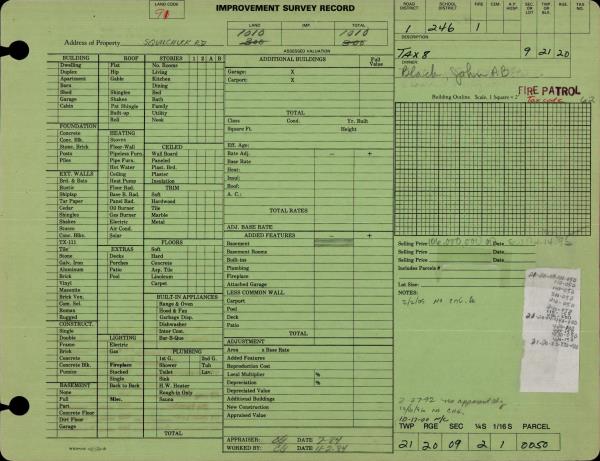 LAND CODE
91
IMPROVEMENT SURVEY RECORD
LAND IMP. TOTAL
1010 1010
800 800
Address of Property SQUILCHUCK RD
ASSESSED VALUATION
ROAD DISTRICT SCHOOL DISTRICT FIRE CEM. HOSP.
1 246 1
TWP. RGE. TAX NO.
DESCRIPTION:
TAX 8
9 21 20
OWNER:
Black, John A B
FIRE PATROL
Tax code
Building Outline Scale, 1 Square = 2'
BUILDING ROOF STORIES 1 2 A B
Dwelling Flat No. Rooms
Duplex Hip Living
Apartment Gable Kitchen
Barn Dining
Shed Shingles Bed
Garage Shakes Bath
Cabin Pat Shingle Family
Built-up Utility
Roll Nook
FOUNDATION
Concrete HEATING
Conc. Blk. Stoves CEILED
Stone, Brick Floor-Wall Wall Board
Posts Pipeless Furn. Paneled
Piles Pipe Furn. Plast. Brd.
Hot Water Plaster
EXT. WALLS Ceiling Insulation
Brd & Bats Heat Pump TRIM
Rustic Floor Rad. Soft
Shiplap Base B. Rad. Hardwood
Tar Paper Panel Rad. Tile
Cedar Oil Burner Marble
Shingles Gas Burner Metal
Shakes Electric
Stucco Air Cond.
Conc. Blks. Solar FLOORS
TX-111 Soft
Tile EXTRAS Hard
Stone Decks Concrete
Galv. Iron Porches Asp. Tile
Aluminum Patio Linoleum
Brick Pool Carpet
Vinyl
Masonite
Brick Ven. BUILT-IN APPLIANCES
Cem. Sel. Range & Oven
Roman Hood & Fan
Rugged Garbage Disp.
CONSTRUCT. Dishwasher
Single Inter Com.
Double LIGHTING Bar-B-Que
Frame Electric
Brick Gas PLUMBING
Concrete 1st G. 2nd G.
Concrete Blk. Fireplace Shower Tub
Pumice Stacked Toilet Lav.
Single Sink
BASEMENT Back to Back H.W. Heater
Full Rough-in Only
Part. Misc. Sauna
Concrete Floor
Dirt Floor
Garage
TOTAL
ADDITIONAL BUILDINGS Full Value
Garage: X
Carport: X
TOTAL
Class Cond. Yr. Built
Square Ft. Height
Eff. Age:
Rate Adj. − +
Base Rate
Heat:
Insul:
Roof:
A. C.:
TOTAL RATES
ADJ. BASE RATE
ADDED FEATURES − +
Basement
Basement Rooms
Built-ins
Plumbing
Fireplace
Attached Garage
LESS COMMON WALL
Carport
Pool
Deck
Patio
TOTAL
ADJUSTMENT
Area x Base Rate
Added Features
Reproduction Cost
Local Multiplier %
Depreciation %
Depreciated Value
Additional Buildings
New Construction
Appraised Value
APPRAISER: DATE 7-84
WORKED BY: DATE 11-2-84
Selling Price
Selling Price
Selling Price
Includes Parcels #
Lot Size:
NOTES:
TWP RGE SEC ¼S 1/16 S PARCEL
21 20 09 2 1 0050